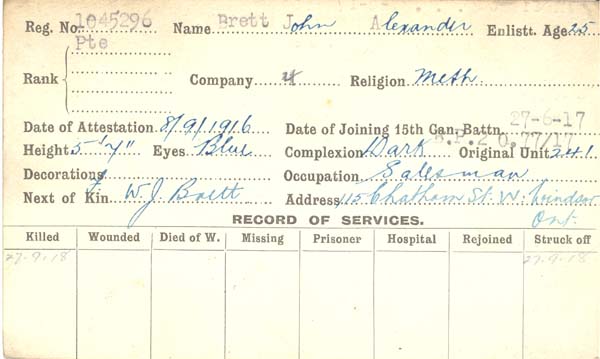 Reg. No. 1045296 Name Brett John Alexander Enlistt. Age 25
Pte
Rank Company 4 Religion Meth.
27-6-17
Date of Attestation 8/9/1916 Date of Joining 15th Can. Battn.
R.P.2 0.77/17
Height 5'7" Eyes Blue Complexion Dark Original Unit 241
Decorations Occupation Salesman
Next of Kin W. J. Brett Address 115 Chatham St. W. Windsor
Ont.
RECORD OF SERVICES.
Killed Wounded Died of W. Missing Prisoner Hospital Rejoined Struck off
27.9.18 27.9.18